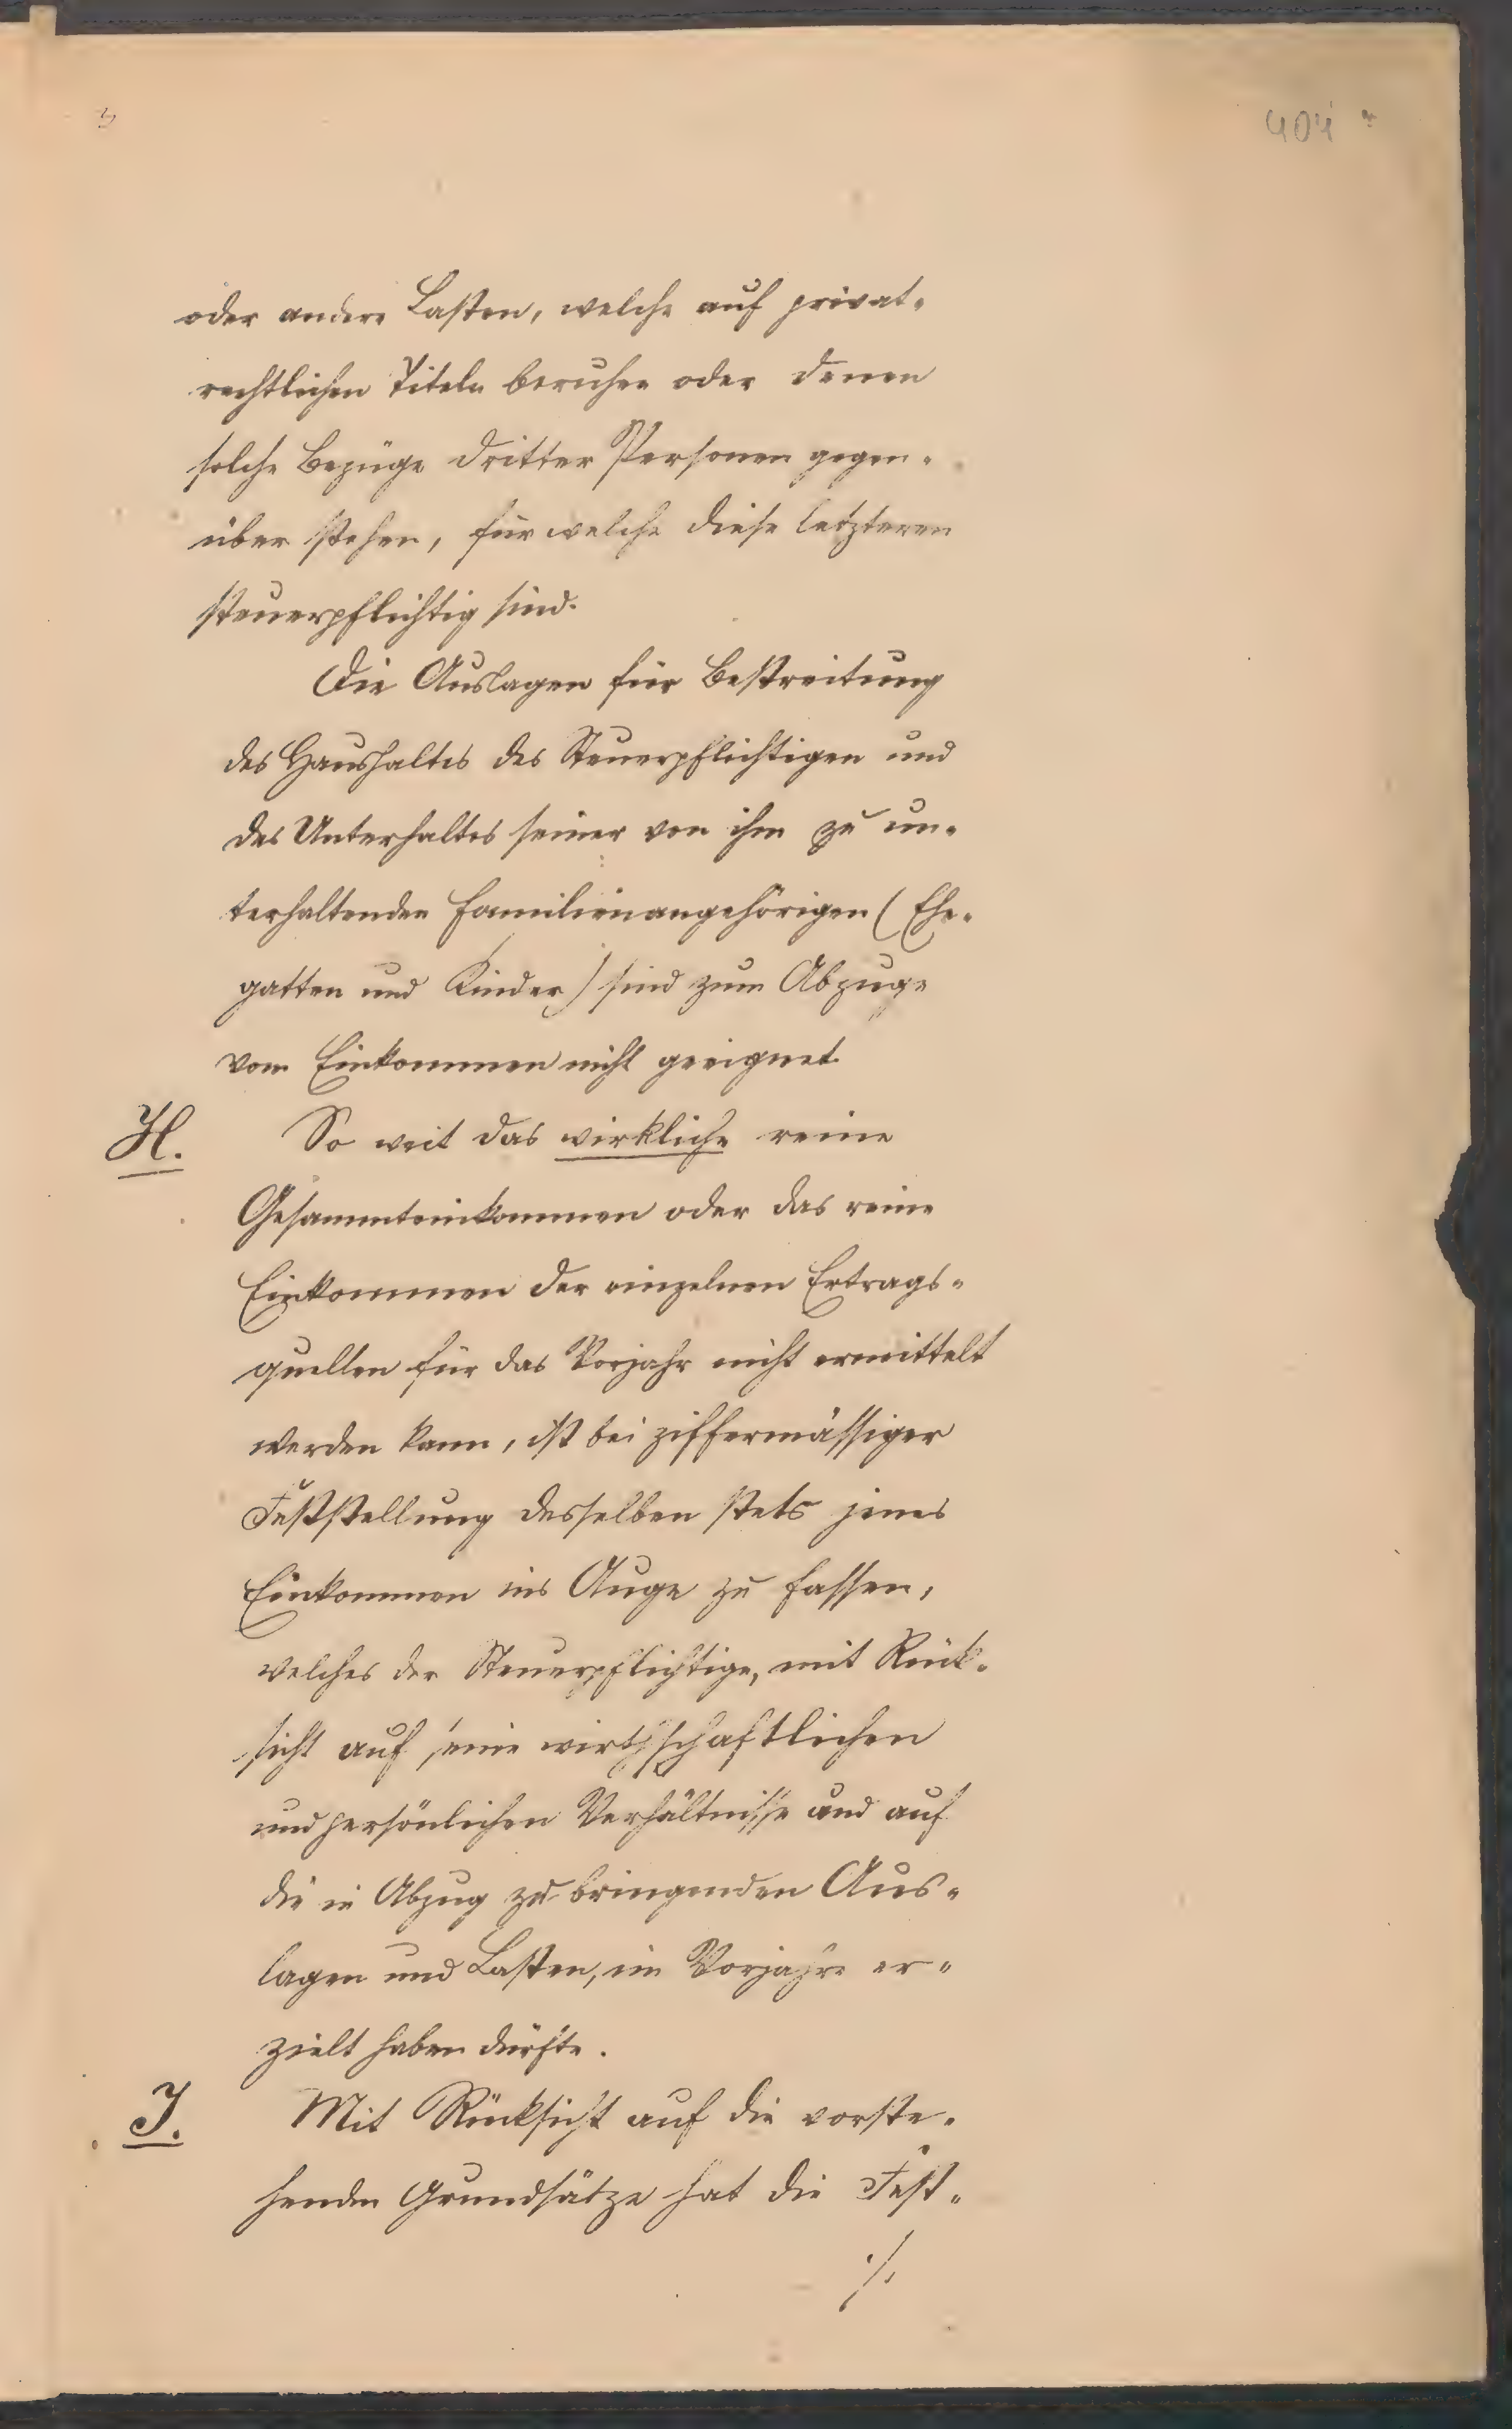 404
oder andere Lasten, welche auf privat-
rechtlichen Titeln beruhen oder denen
solche Bezüge dritter Personen gegen-
über stehen, für welche diese letzteren
steuerpflichtig sind.
Die Auslagen für Bestreitung
des Haushaltes des Steuerpflichtigen und
des Unterhaltes seiner von ihm zu un-
terhaltenden Familienangehörigen (Ehe-
gatten und Kinder) sind zum Abzuge
vom Einkommen nicht geeignet.
H. So weit das wirkliche reine
Gesammteinkommen oder das reine
Einkommen der einzelnen Ertrags-
quellen für das Vorjahr nicht ermittelt
werden kann, ist bei ziffermässiger
Feststellung desselben stets jenes
Einkommen ins Auge zu fassen,
welches der Steuerpflichtige, mit Rück-
sicht auf seine wirthschaftlichen
und persönlichen Verhältnisse und auf
die in Abzug zu bringenden Aus-
lagen und Lasten, im Vorjahre er-
zielt haben dürfte.
J. Mit Rücksicht auf die vorste-
henden Grundsätze hat die Fest-
./.